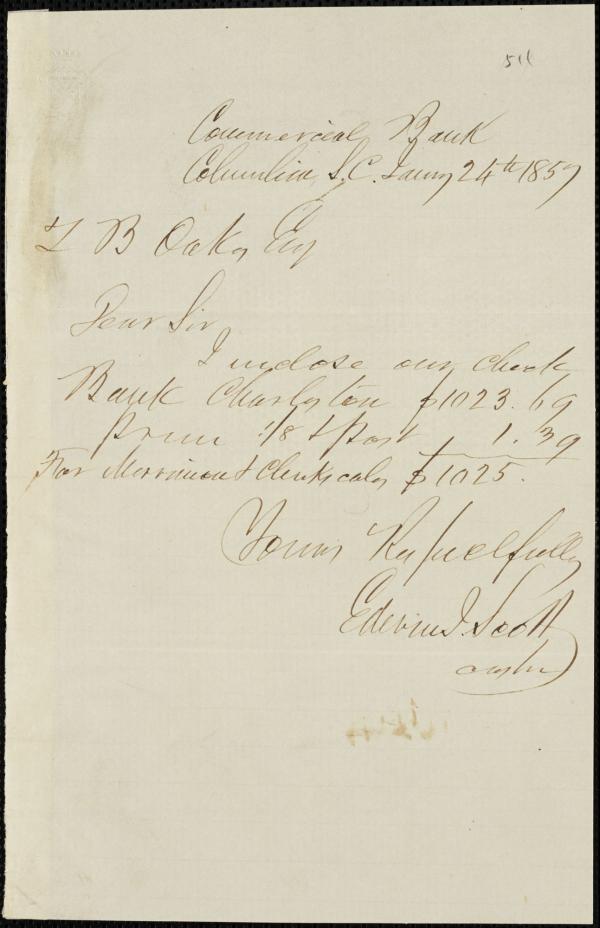 511
Commercial Bank
Columbia, S.C. Jany 24th 1857
Z B Oakes Esq
Dear Sir
I inclose our check
Bank Charleston $1023.69
prem 1/8 & post 1.39
For Merriman & Clinkscales $1025.
Yours Respectfully
Edwin J. Scott
Cashr